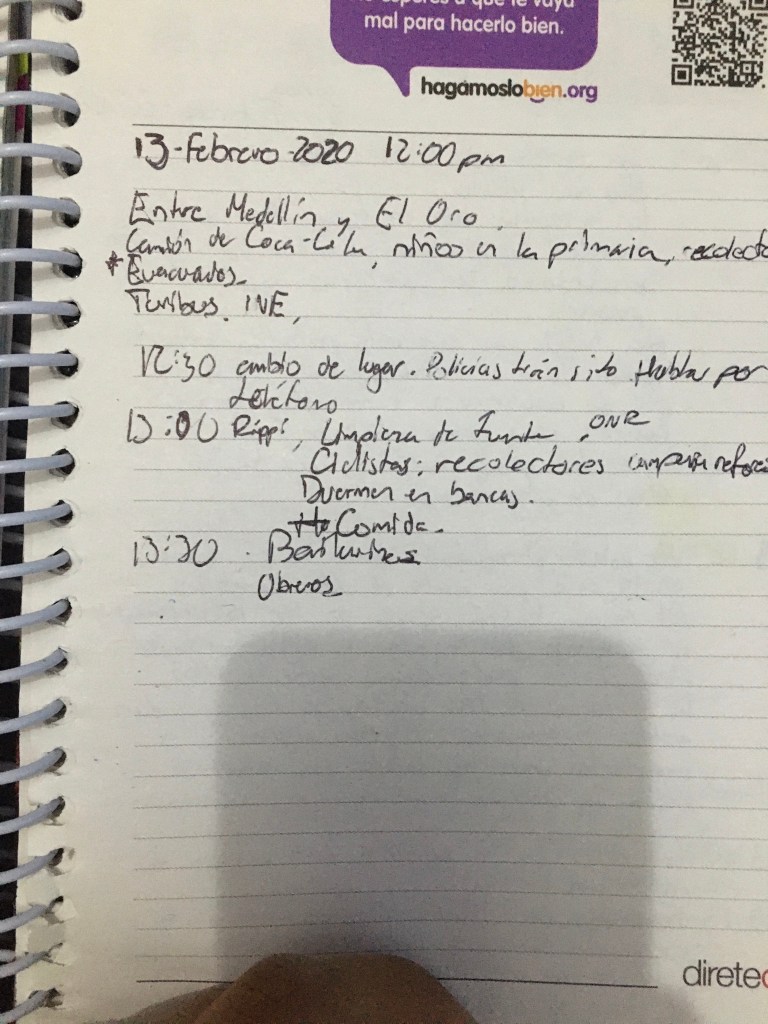 mal para hacerlo bien.
hagámoslobien.org
13-Febrero-2020 12:00 pm
Entre Medellín y El Oro.
Camión de Coca-Cola, niños en la primaria, recolecto
* Evacuados
Turibus. INE,
12:30 cambio de lugar. Policías tránsito Hablar por
teléfono
13:00 Rappi, Limpieza de Fuente.
Ciclistas; recolectores
Duermen en bancas.
Comida.
13:30 . Bailarines
Obreros
direte